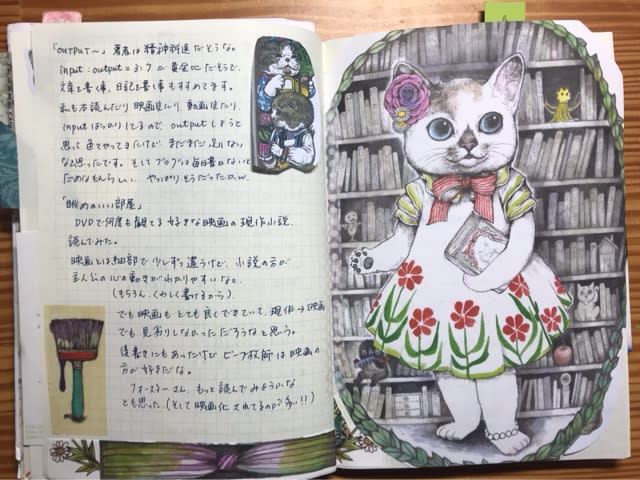 「output〜」著者は精神科医だそうな。
input：output＝3：7が黄金比だそうで、
文章を書く事、日記を書く事もすすめてます。
私も本読んだり映画見たり、動画見たり、
inputばっかりしてるので、outputしようと
思って色々やってきたけど まだまだ足りない
なと思ったです。そしてブログは毎日書かないと
だめなもんらしい。 やっぱりそうだったかw.
「眺めのいい部屋」
DVDで何度も観てる好きな映画の現作小説.
読んでみた。
映画とは細部で少しずつ違うけど、小説の方が
主人公の心の動きがわかりやすいなと.
(もちろん、くわしく書けるから)
でも映画もとても良くできていて、現作→映画
でも見劣りしなかっただろうなと思う。
後書きにもあったけど ビーブ牧師は映画の
方が好きだな。
フォースターさん、もっと読んでみようかな
とも思った.(そして映画化されてるのが多い!!)